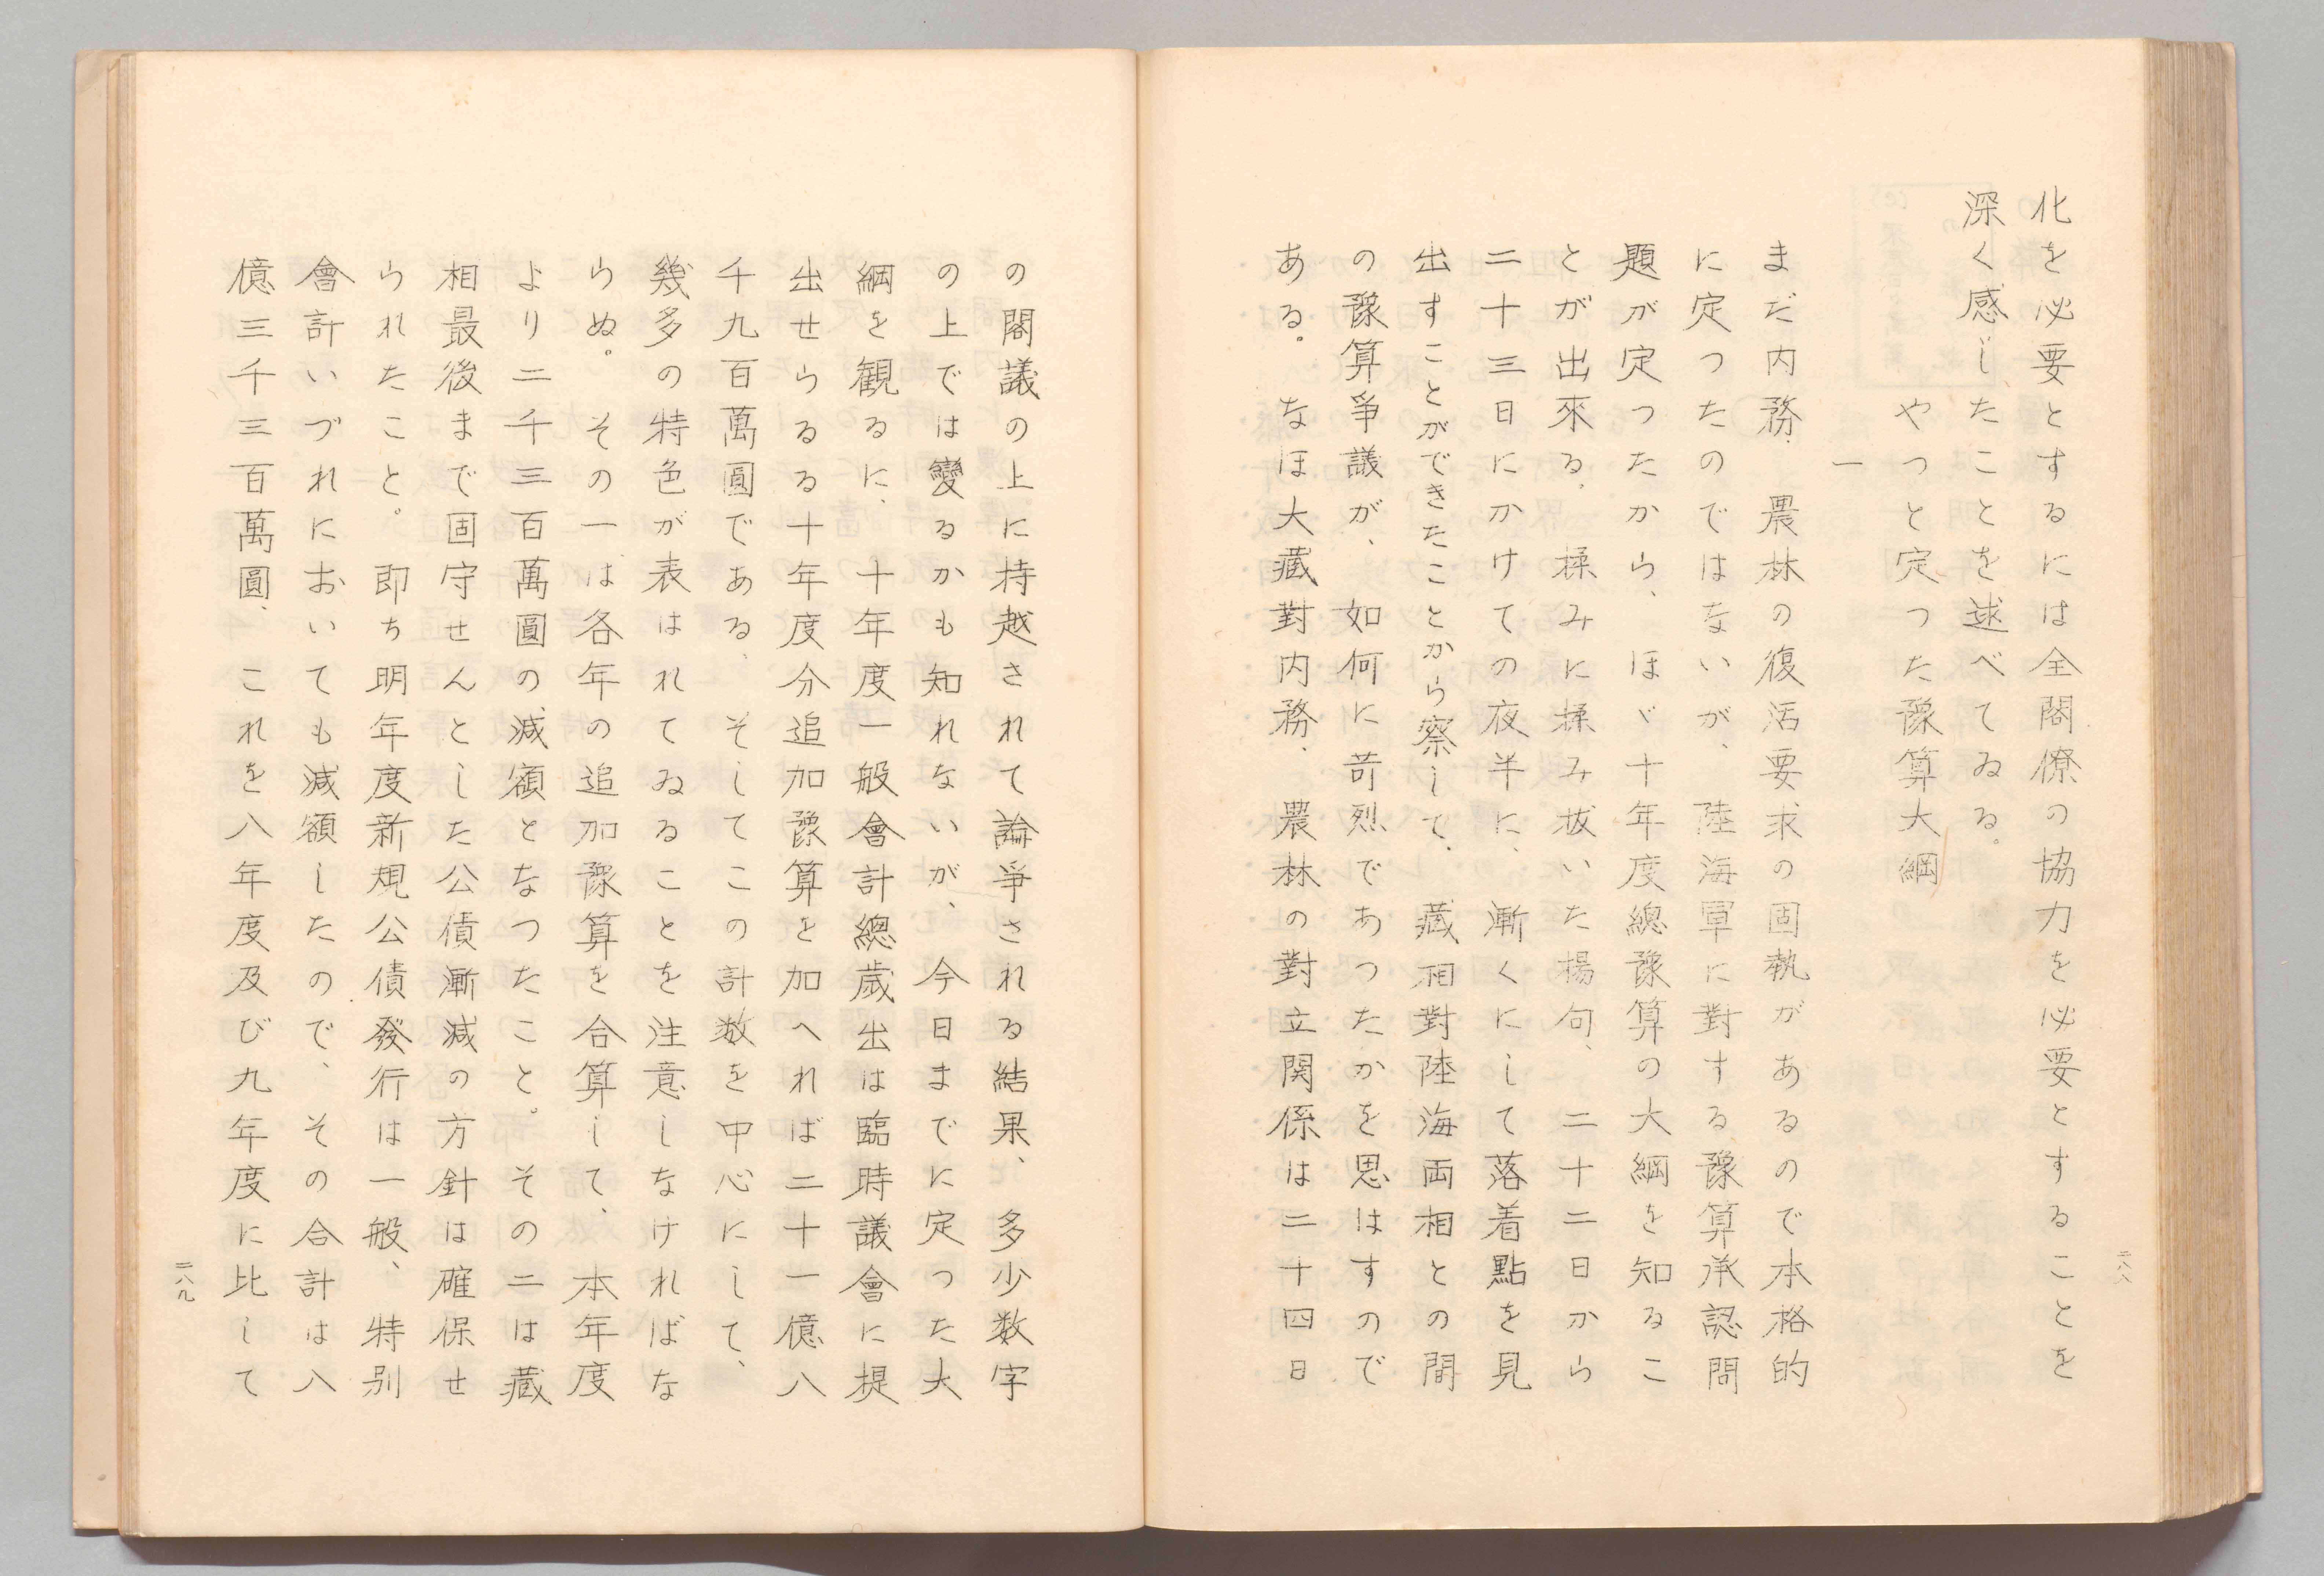 化を必要とするには全閣僚の協力を必要とすることを
深く感じたことを述べてゐる。
やつと定つた豫算大綱
一
まだ内務、農林の復活要求の固執があるので本格的
に定つたのではないが、陸海軍に對する豫算承認問
題が定つたから、ほゞ十年度總豫算の大綱を知るこ
とが出來る。揉みに揉み抜いた揚句、二十二日から
二十三日にかけての夜半に、漸くにして落着點を見
出すことができたことから察して、藏相對陸海両相との間
の豫算爭議が、如何に苛烈であつたかを思はすので
ある。なほ大藏對内務、農林の對立関係は二十四日
二八八
の閣議の上に持越されて論爭される結果、多少数字
の上では變るかも知れないが、今日までに定つた大
綱を観るに、十年度一般會計總歳出は臨時議會に提
出せらるる十年度分追加豫算を加へれば二十一億八
千九百萬圓である。そしてこの計数を中心にして、
幾多の特色が表はれてゐることを注意しなければな
らぬ。その一は各年の追加豫算を合算して、本年度
より二千三百萬圓の減額となつたこと。その二は藏
相最後まで固守せんとした公債漸減の方針は確保せ
られたこと。即ち明年度新規公債發行は一般、特別
會計いづれにおいても減額したので、その合計は八
億三千三百萬圓、これを八年度及び九年度に比して
二八九